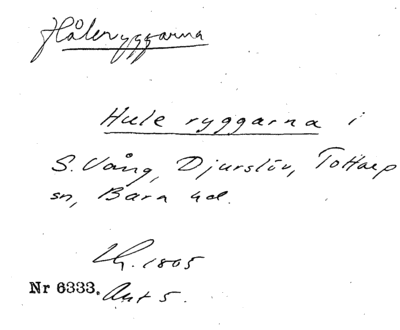 Håleryggarna
Hule ryggarna i
S. Vång, Djurslöv, Tottarp
sn, Bara hd.
Lh. 1805
Nr 6333. Akt 5.